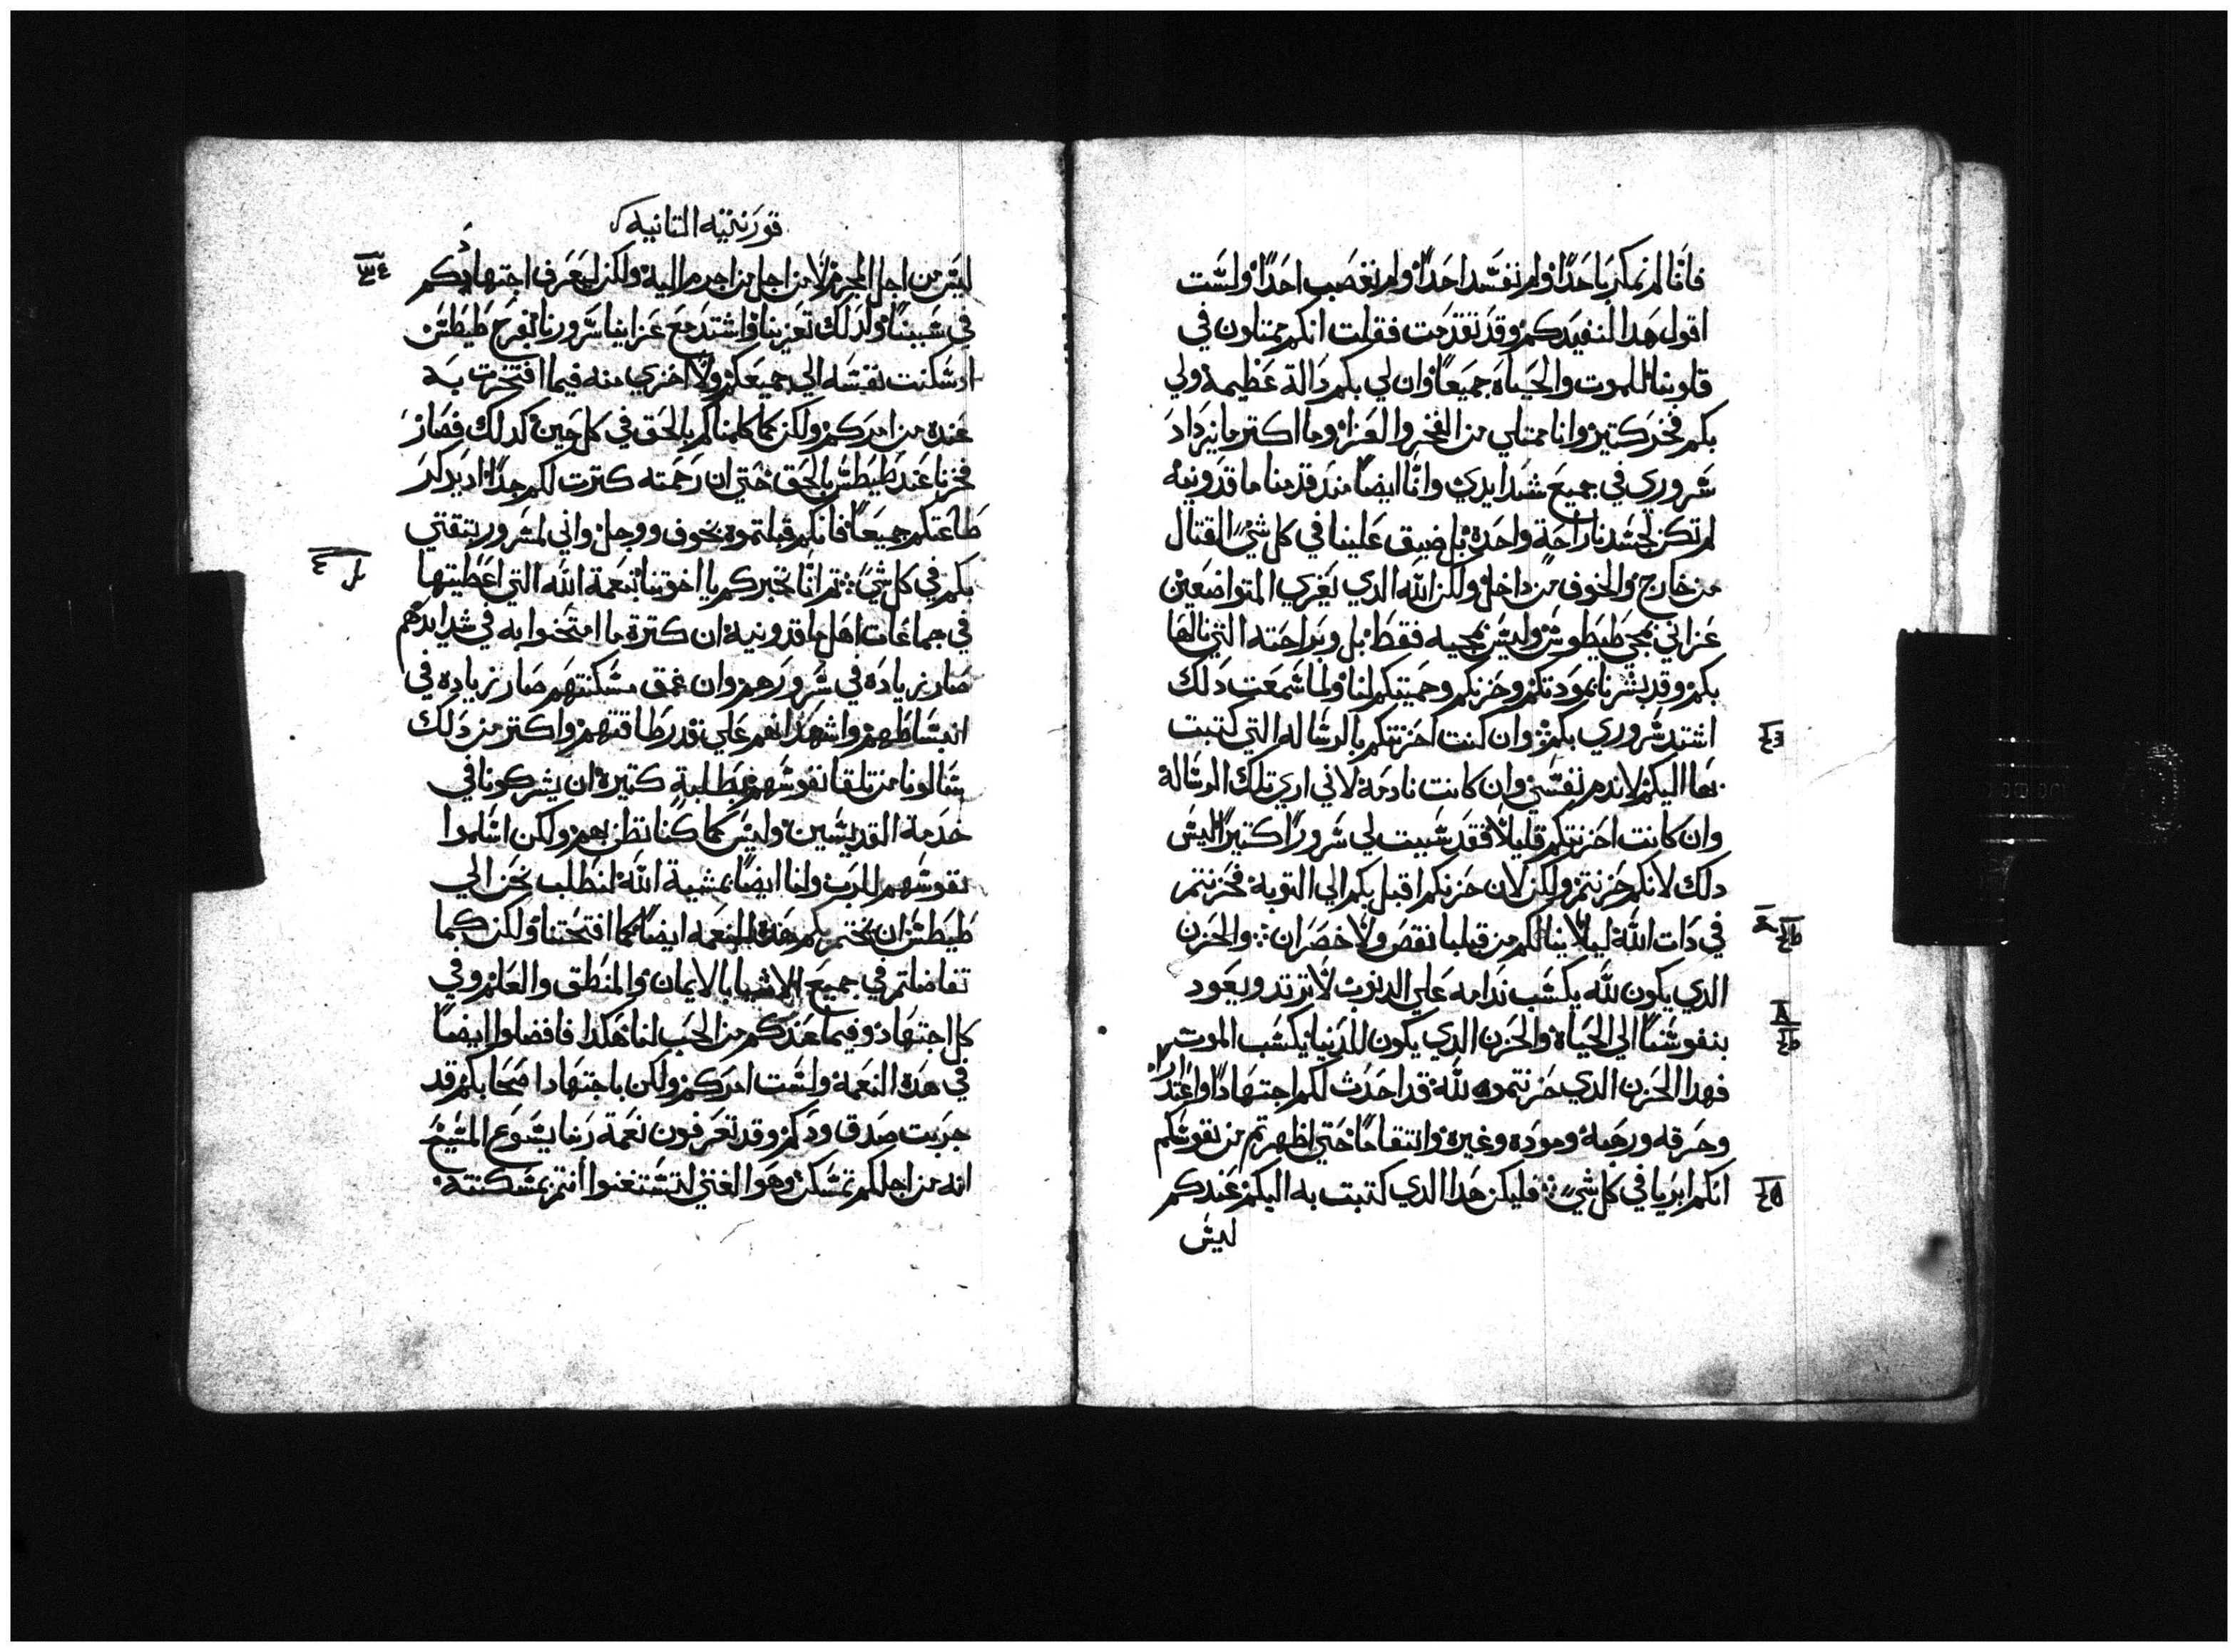 فانا لم نمكر باحدًا ولم نفسد احدًا ولم نغصب احدًا ولست
اقول هدا لنفيدكم وقد تقدمت فقلت انكم ممتلون في
قلوبنا للموت والحياه جميعًا وان لي بكم دالة عظيمة ولي
بكم فخر كتير وانا ممتلي من الفخر والعزا وما اكتر ما يزداد
سروري في جميع شدايدي وانا ايضًا مند قدمنا ماقدونيه
لم تكن لجسدنا راحة واحدة بل ضيق علينا في كل شيً القتال
من خارج والخوف من داخل ولكن الله الدي يعزي المتواضعين
عزاني بمجي طيطوس وليس بمجيه فقط بل وبراحته التي نالها
بكم وقد بشرنا بمودتكم وحزنكم وحميتكم لنا ولما سمعت دلك
اشتد سروري بكم وان كنت احزنتكم بالرساله التي كتبت
بها اليكم لا ندم نفسي وان كانت نادمة لاني اري تلك الرسالة
وان كانت احزنتكم قليلًا فقد سببت لي سرورًا كتيرًا ليس
دلك لانكم حزنتم ولكن لان حزنكم اقبل بكم الي التوبة فحزنتم
في دات الله ليلا ينالكم من قبلنا نقص ولا خصران والحزن
الدي يكون لله يكسب ندامه علي الدنوب لا ترتد ويعود
بنفوسنا الي الحياة والحزن الدي يكون للدنيا يكسب الموت
فهدا الحزن الدي حزنتموه لله قد احدث لكم اجتهادًا واعتدارا
وحرقه ورهبة ومودة وغيرة وانتقامًا حتي اظهرتم من نفوسكم
انكم ابريا في كل شيً فليكن هدا الدي كتبت به اليكم عندكم
ليس
قورنتيه التانيه
ليس من اجل المجرم ولا من اجل من اجرم اليه ولكن ليعرف اجتهادكم
في سببنا ولدلك تعزينا واشتد مع عزاينا سرورنا بفرح طيطس
اد سكنت نفسه الي جميعكم ولا اخزي منه فيما افتخرت به
عنده من امركم ولكن كما كلمناكم بالحق في كل حين كدلك فصار
فخرنا عند طيطس بالحق حتي ان رحمته كترت لكم جدًا اد يدكر
طاعتكم جميعًا فانكم قبلتموه بخوف ووجل واني لمسرور بتقتي
بكم في كل شيً تم انا نخبركم يا اخوتنا بنعمة الله التي اعطيتها
في جماعات اهل ماقدونية ان كترة ما امتحنوا به في شدايدهم
صار زيادة في سرورهم وان عمق مسكنتهم صار زياده في
انبساطهم واشهد انهم علي قدر طاقتهم واكتر من دلك
سالونا من تلقا نفوسهم بطلبة كتيرة ان يشركونا في
خدمة القديسين وليس كما كنا نظن بهم ولكن اسلموا
نفوسهم للرب ولنا ايضًا بمشية الله لنطلب نحن الي
طيطس ان يختم بكم هدة النعمة ايضًا كما افتحتنا ولكن كما
تفاضلتم في جميع الاشيا بالايمان والمنطق والعلم وفي
كل اجتهاد وفيما عندكم من الحب لنا هكدا فافضلوا ايضًا
في هدة النعمة ولست امركم ولكن باجتهاد اصحابكم قد
جربت صدق ودكم وقد تعرفون نعمة ربنا يسوع المسيح
انه من اجلكم تمسكن وهو الغني لتستغنوا انتم بمسكنته